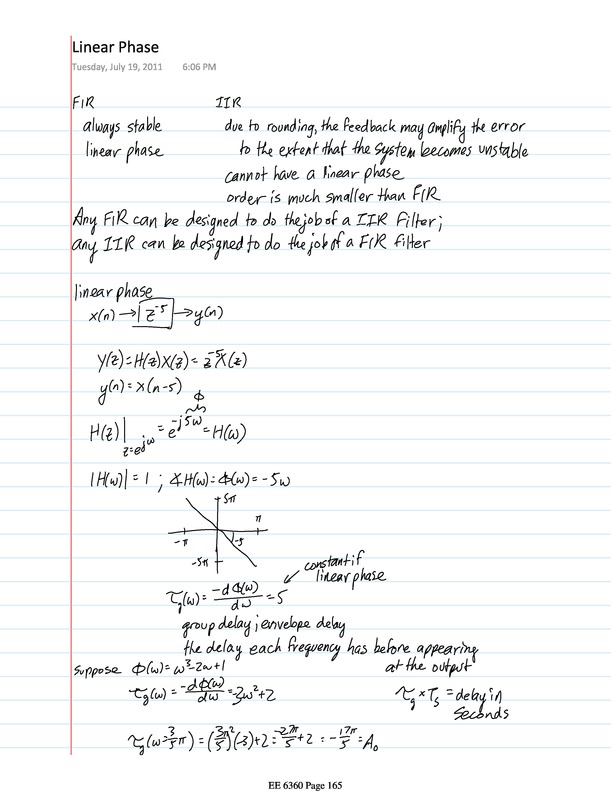 Linear Phase
Tuesday, July 19, 2011 6:06 PM
FIR IIR
always stable due to rounding, the feedback may amplify the error
linear phase to the extent that the system becomes unstable
cannot have a linear phase
order is much smaller than FIR
Any FIR can be designed to do the job of a IIR filter;
any IIR can be designed to do the job of a FIR filter
linear phase
x(n) → z⁻⁵ → y(n)
Y(z)=H(z)X(z)= z⁻⁵X(z)
y(n)=x(n-5)
ϕ
H(z)|z=e^jω = e^-j5ω = H(ω)
|H(ω)| = 1 ; ∡H(ω)=ϕ(ω)= -5ω
5π
π
-π -5
-5π
constant if
linear phase
τg(ω)= -dϕ(ω)/dω = 5
group delay; envelope delay
the delay each frequency has before appearing
at the output
suppose ϕ(ω)=ω³-2ω+1
τg(ω)= -dϕ(ω)/dω = -3ω²+2
τg × Ts = delay in
seconds
τg(ω=3/5π) = (3π/5)²(-3)+2 = -27π/5+2 = -17π/5 = A₀
EE 6360 Page 165